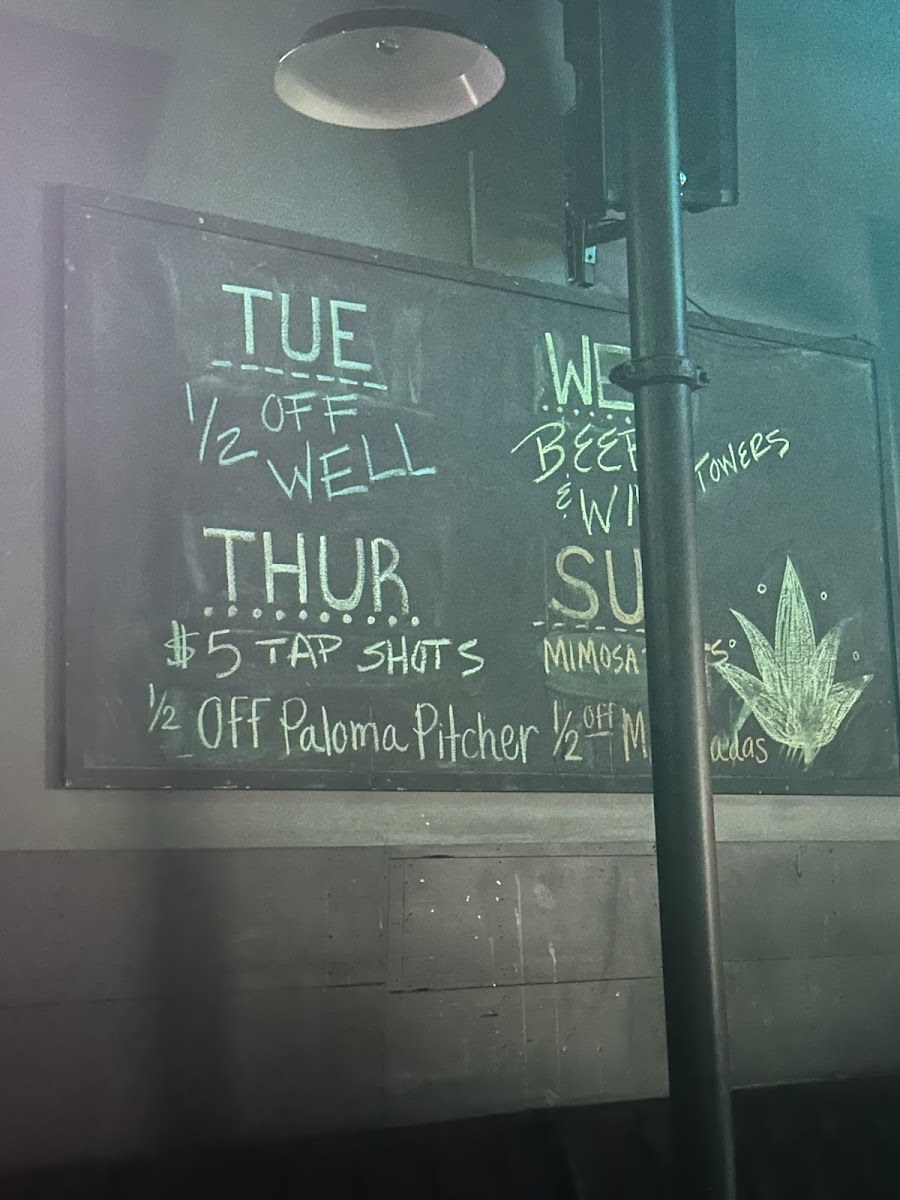 TUE
1/2 OFF
WELL
WE
BEE TOWERS
& WI
THUR
$5 TAP SHOTS
1/2 OFF Paloma Pitcher
SU
MIMOSA
1/2 OFF M adas